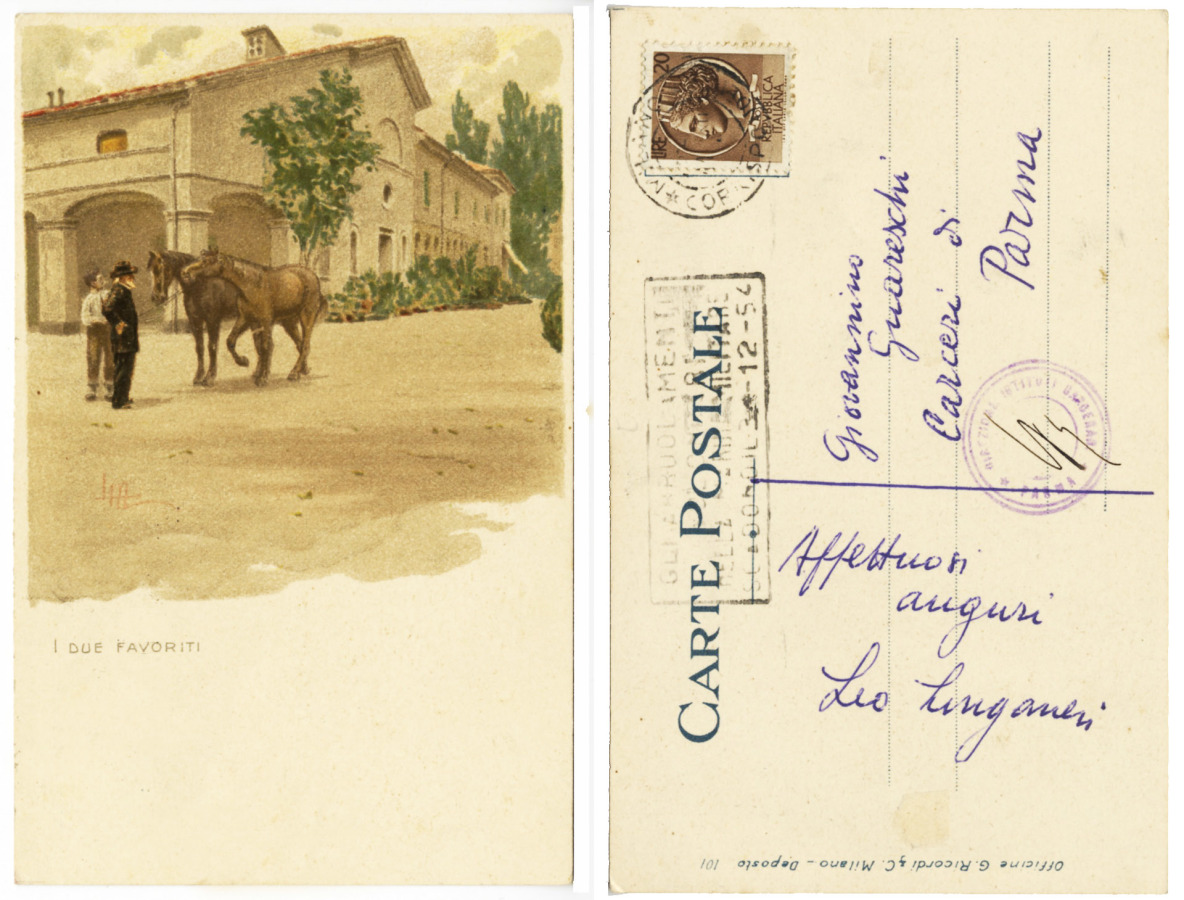 I DUE FAVORITI
LIRE 20
REPVBBLICA
ITALIANA
CARTE POSTALE
12-54
Giovannino
Guareschi
Carceri di
Parma
PARMA
Affettuosi
auguri
Leo Longanesi
Officine G. Ricordi & C. Milano - Deposto 101